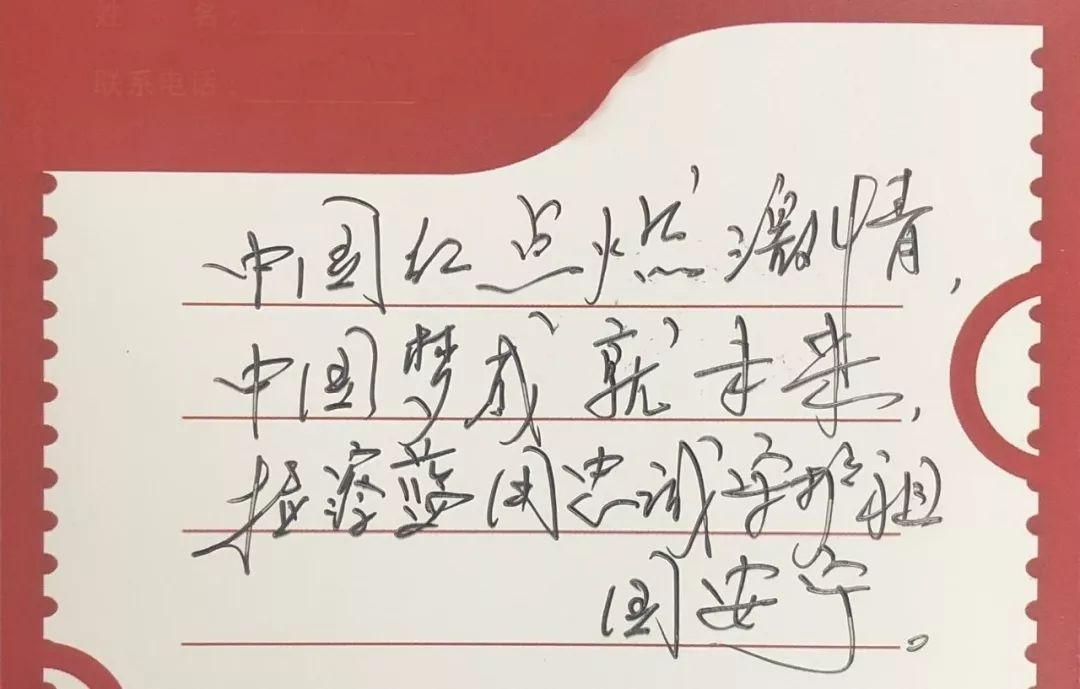 姓 名：
联系电话：
中国红点燃激情，
中国梦成就未来，
检疫蓝用忠诚守护祖
国安宁。